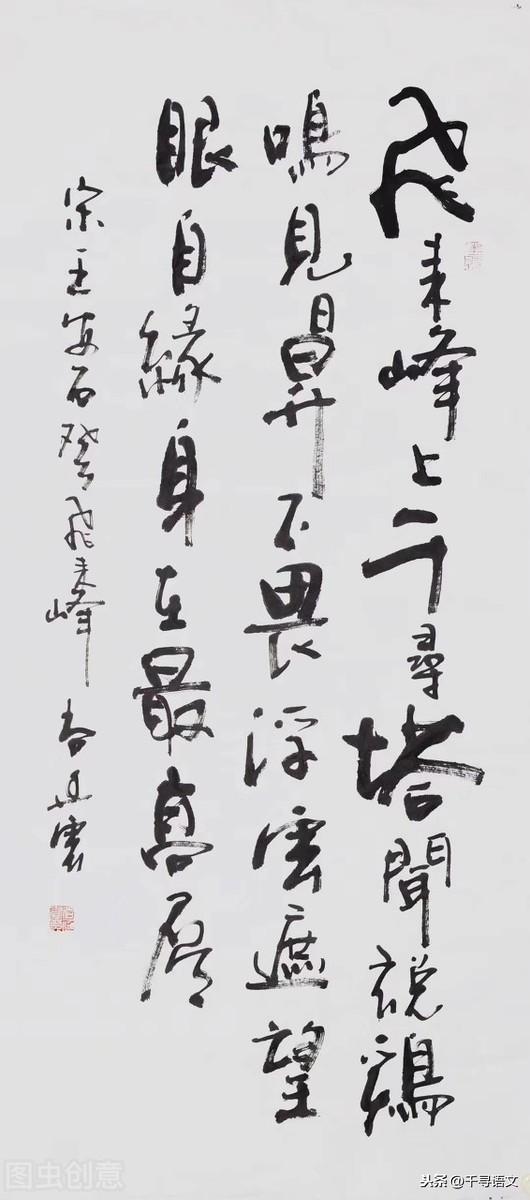 飛来峰上千尋塔聞説鷄
鳴見日昇不畏浮雲遮望
眼自緣身在最高層
宋王安石登飛来峰
图虫创意
头条@千寻语文